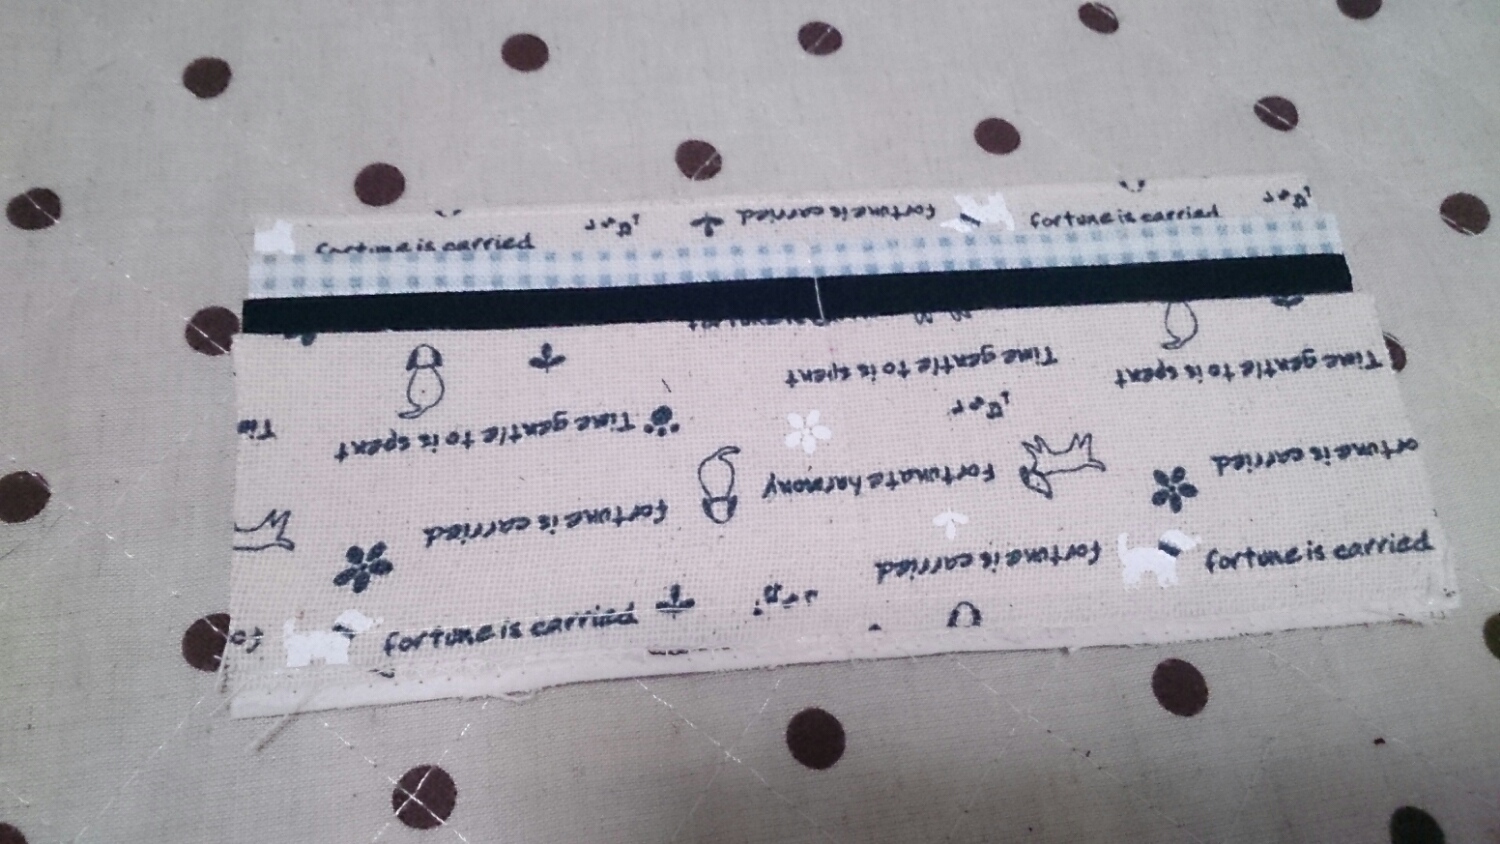 fortune is carried
fortune is carried
fortune is carried
Time gentle to is spent
Time gentle to is spent
Time gentle to is spent
Tim
fortunate harmony
ortune is carried
fortune is carried
fortune is carried
fortune is carried
fortune is carried
fo